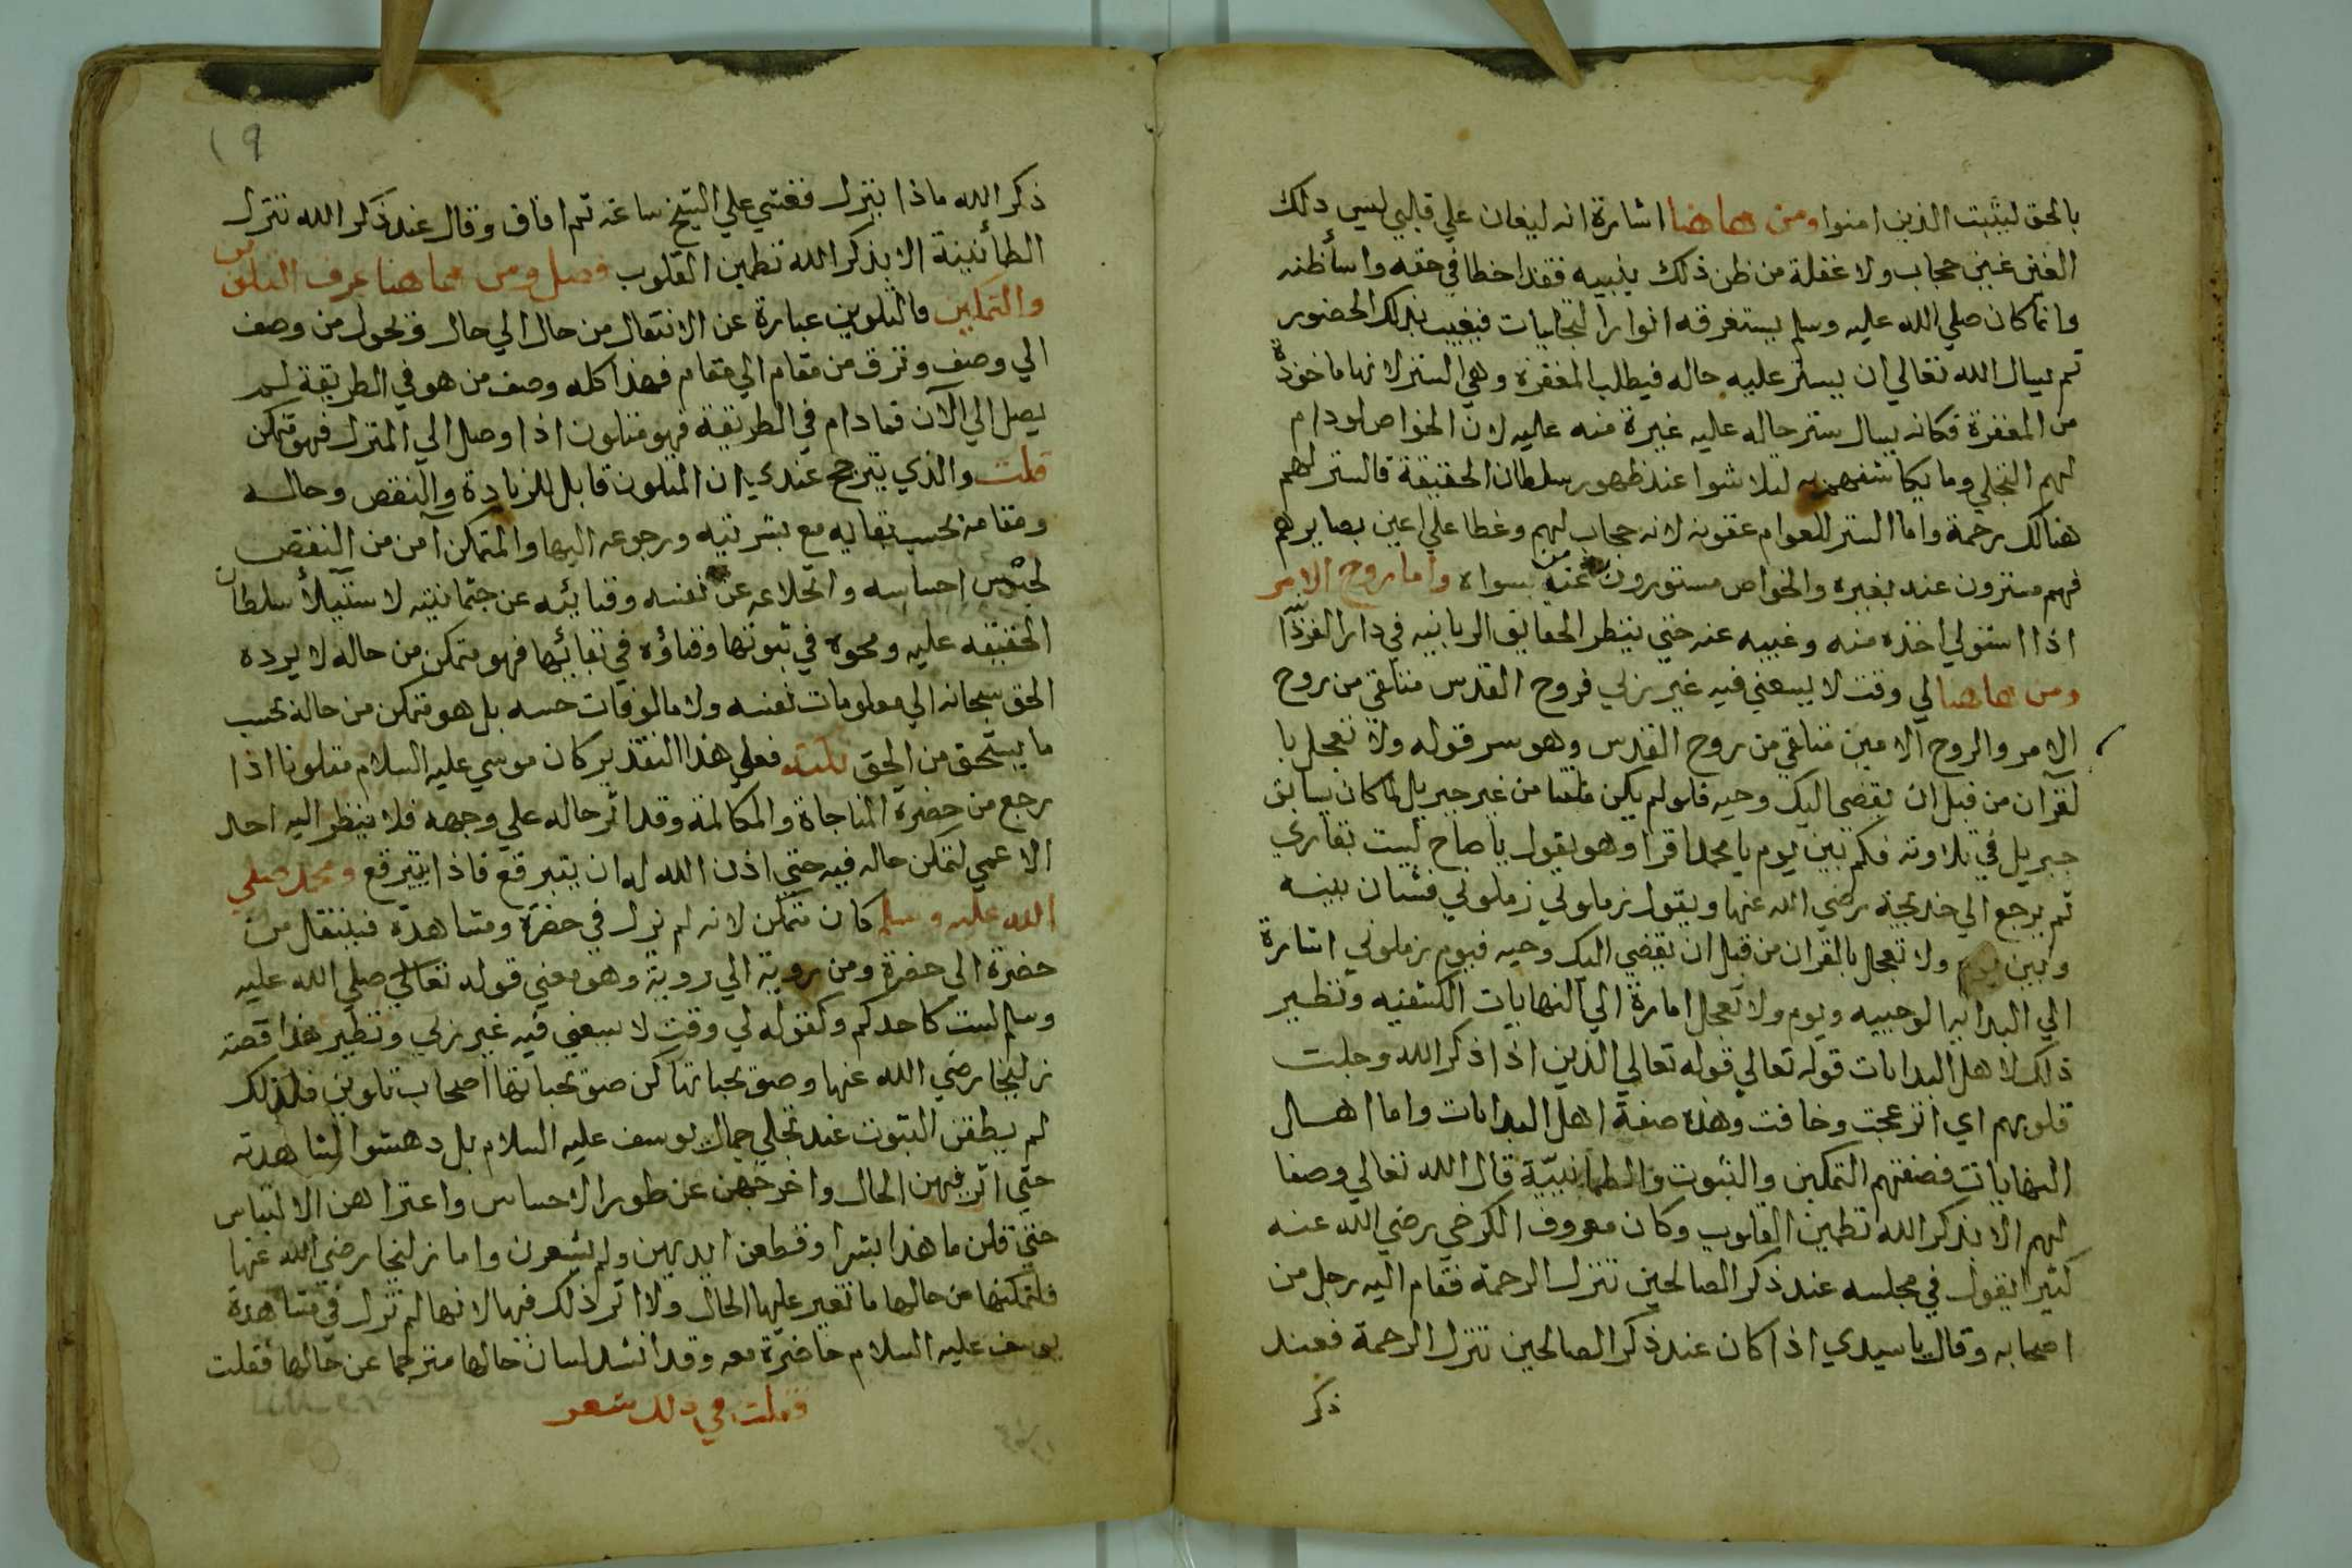 بالحق ليثبت الذين امنوا ومن هاهنا اشارة انه ليغان علي قلبي ليس ذلك
الغين غين حجاب ولا غفلة من ظن ذلك بنبيه فقد اخطا في حقه واسأ ظنه
وانما كان صلي الله عليه وسلم يستغرقه انوار التجليات فيغيب بذلك الحضور
ثم يسال الله تعالي ان يستر عليه حاله فيطلب المغفرة وهي الستر لانها ماخوذة
من المغفرة فكانه يسال ستر حاله عليه غيرة منه عليه لان الخواص لو دام
لهم التجلي وما يكاشفهم به لتلاشوا عند ظهور سلطان الحقيقة فالستر لهم
هنالك رحمة واما الستر للعوام عقوبة لانه حجاب لهم وغطا علي اعين بصايرهم
فهم مستترون عنه بغيره والخواص مستورون عنه من سواه واما روح الامر
اذا استولي اخذه منه وغيبه عنه حتي ينظر الحقايق الربانيه في دار الفردانية
ومن هاهنا لي وقت لا يسعني فيه غير ربي فروح القدس متلقي من روح
الامر والروح الامين متلقي من روح القدس وهو سر قوله ولا تعجل با
لقرآن من قبل ان يقضي اليك وحيه فلو لم يكن متلقيا من غير جبريل لما كان يسابق
جبريل في تلاوته فكم بين يوم يا محمد اقرا وهو يقول يا صاح لست بقاري
ثم يرجع الي خديجة رضي الله عنها ويقول زملوني زملوني فشتان بينه
وبين يوم ولا تعجل بالقران من قبل ان يقضي اليك وحيه فيوم زملوني اشارة
الي البدايه الوحييه ويوم ولا تعجل امارة الي النهايات الكشفيه ونظير
ذلك لاهل البدايات قوله تعالي قوله تعالي الذين اذا ذكر الله وجلت
قلوبهم اي انزعجت وخافت وهذه صفة اهل البدايات واما اهل
النهايات فصفتهم التمكين والثبوت والطمانينة قال الله تعالي وصفا
لهم الا بذكر الله تطمين القلوب وكان معروف الكرخي رضي الله عنه
كثيرا يقول في مجلسه عند ذكر الصالحين تنزل الرحمة فقام اليه رجل من
اصحابه وقال يا سيدي اذا كان عند ذكر الصالحين تنزل الرحمة فعند
ذكر
19
ذكر الله ماذا ينزل فغشي علي الشيخ ساعة ثم افاق وقال عند ذكر الله تنزل
الطمأنينة الا بذكر الله تطمين القلوب فصل ومن هاهنا عرف التلوين
والتمكين فالتلوين عبارة عن الانتقال من حال الي حال وتحول من وصف
الي وصف وترق من مقام الي مقام فهذا كله وصف من هو في الطريقة لم
يصل الي الآن فما دام في الطريقة فهو متلون اذا وصل الي المنزل فهو متمكن
قلت والذي يترجح عندي ان المتلون قابل للزيادة والنقص وحاله
ومقامه بحسب بقايه مع بشريته ورجوعه اليها والمتمكن آمن من النقص
لخنوس احساسه وانخلاعه عن نفسه وفنائه عن جثمانيته لاستيلأ سلطان
الحقيقه عليه ومحوه في ثبوتها وفناؤه في بقائها فهو متمكن من حاله لا يرده
الحق سبحانه الي معلومات نفسه ولا مالوفات حسه بل هو متمكن من حاله بحسب
ما يستحق من الحق فعلي هذا التقدير كان موسي عليه السلام متلونا اذا
رجع من حضرة المناجاة والمكالمة وقد اثر حاله علي وجهه فلا ينظر اليه احد
الا عمي لتمكن حاله فيه حتي اذن الله له ان يتبرقع فاذا يتبرقع ومحمد صلي
الله عليه وسلم كان متمكن لانه لم يزل في حضرة ومشاهدة فينتقل من
حضرة الي حضرة ومن روية الي روية وهو معني قوله تعالي صلي الله عليه
وسلم لست كاحدكم وكقوله لي وقت لا يسعني فيه غير ربي ونظير هذا قصة
زليخا رضي الله عنها وصويحباتها كن صويحباتها اصحاب تلوين فلذلك
لم يطقن الثبوت عند تجلي جمال يوسف عليه السلام بل دهشوا لمشاهدته
حتي اثر فيهن الحال واخرجهن عن طور الاحساس واعتراهن الالتباس
حتي قلن ما هذا بشرا وقطعن ايديهن ولم يشعرن واما زليخا رضي الله عنها
فلتمكنها من حالها ما تغير عليها الحال ولا اثر ذلك فيها لانها لم تزل في مشاهدة
يوسف عليه السلام حاضرة معه وقد انشد لسان حالها مترجما عن حالها فقلت
فقلت في ذلك شعر